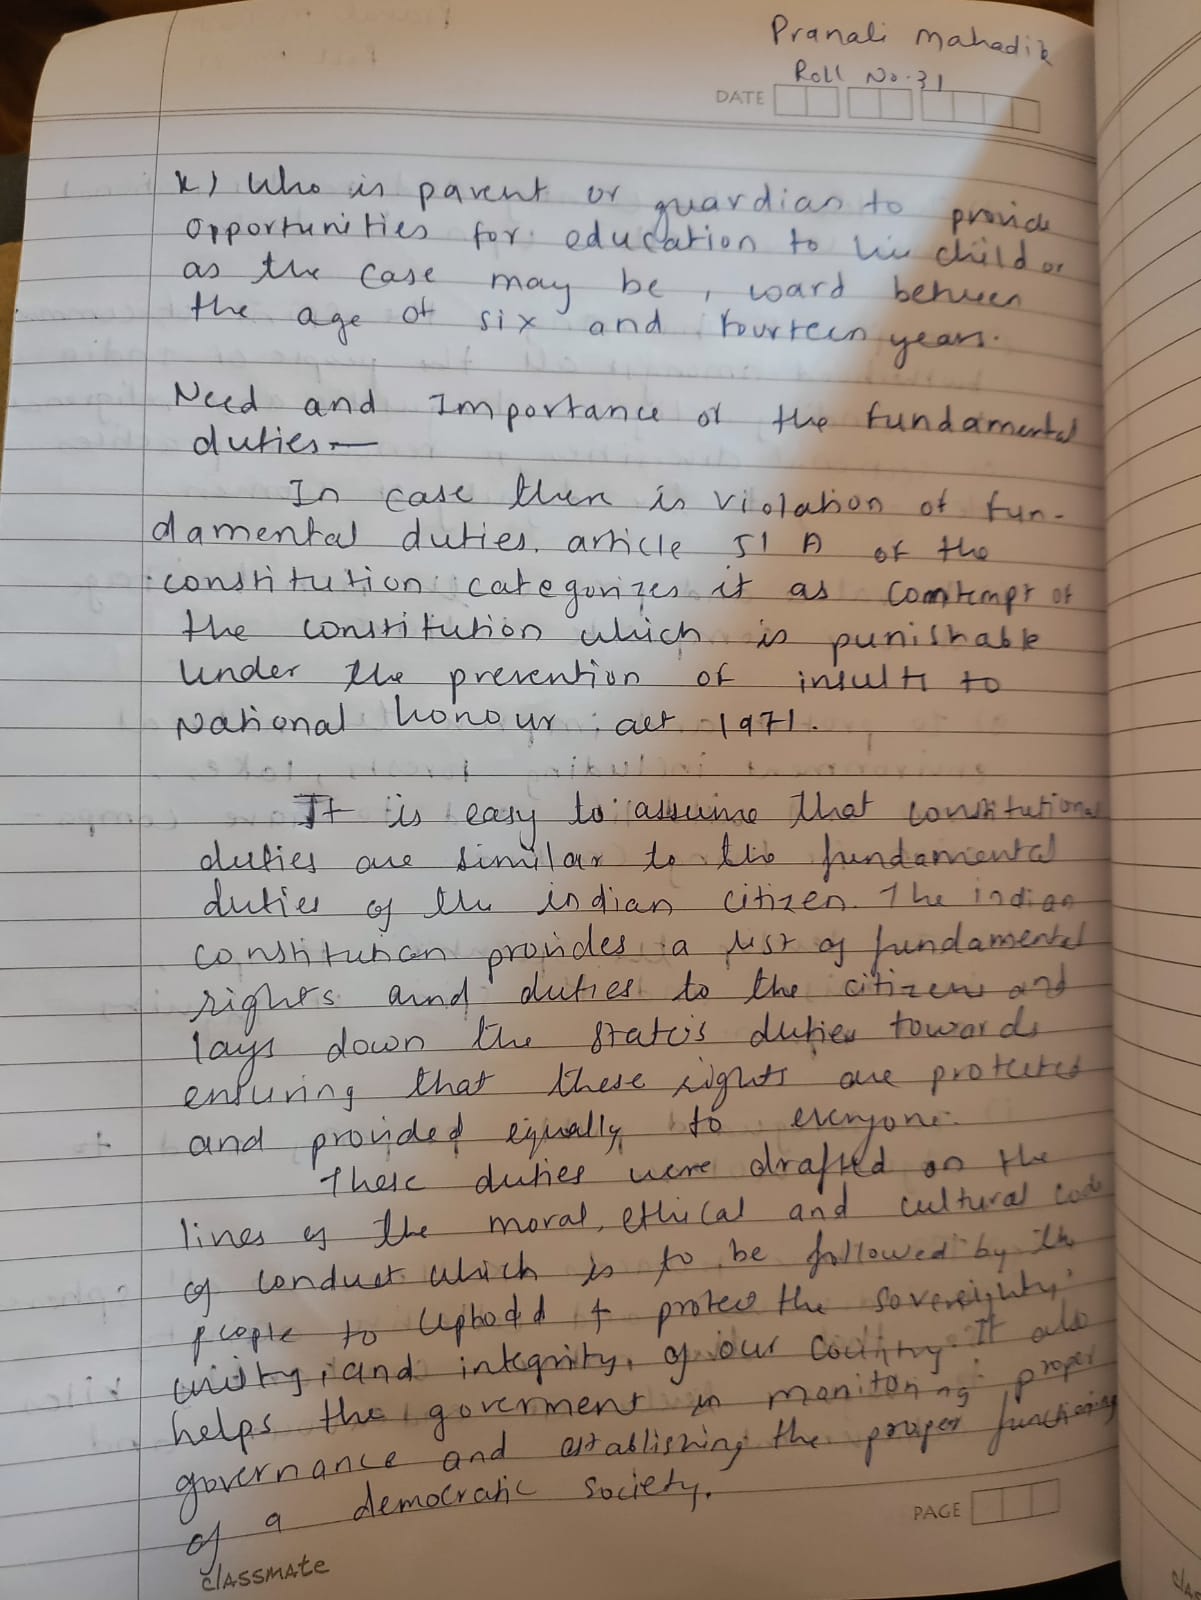 Pranali Mahadik
Roll No. 31
DATE
k) Who is parent or guardian to provide
opportunities for education to his child or
as the case may be, ward between
the age of six and fourteen years.
Need and Importance of the fundamental
duties -
In case there is violation of fun-
damental duties. article 51 A of the
constitution categorizes it as contempt of
the constitution which is punishable
under the prevention of insults to
National honour act 1971.
It is easy to assume that constitutional
duties are similar to the fundamental
duties of the indian citizen. The indian
constitution provides a list of fundamental
rights and duties to the citizens and
lays down the state's duties towards
ensuring that these rights are protected
and provided equally to everyone.
These duties were drafted on the
lines of the moral, ethical and cultural code
of conduct which is to be followed by the
people to uphold + protect the sovereignty,
unity, and integrity, of our country. It also
helps the goverment in monitoring proper
governance and establishing the proper functioning
of a democratic society.
PAGE
classmate